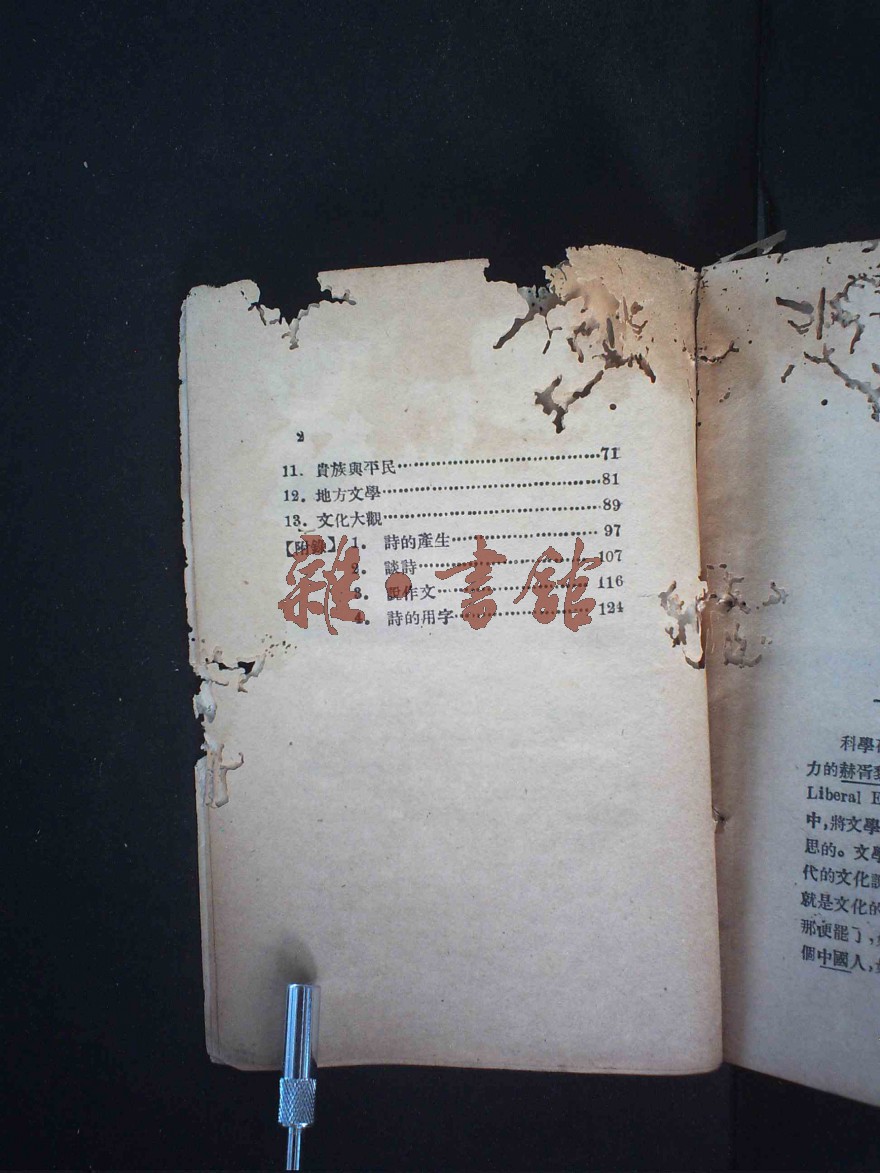 2
11. 貴族與平民……71
12. 地方文學……81
13. 文化大觀……89
【附錄】 1. 詩的產生……97
2. 談詩……107
3. 說作文……116
4. 詩的用字……124
雜·書館
科學
力的赫胥黎
Liberal E
中,將文學
思的。文學
代的文化
就是文化的
那便罷了,
個中國人,